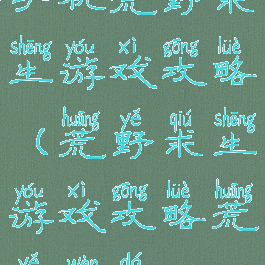 荒野求
shēng yóu xì gōng lüè
生游戏攻略
huāng yě qiú shēng
（荒野求生
yóu xì gōng lüè huāng
游戏攻略荒
yě